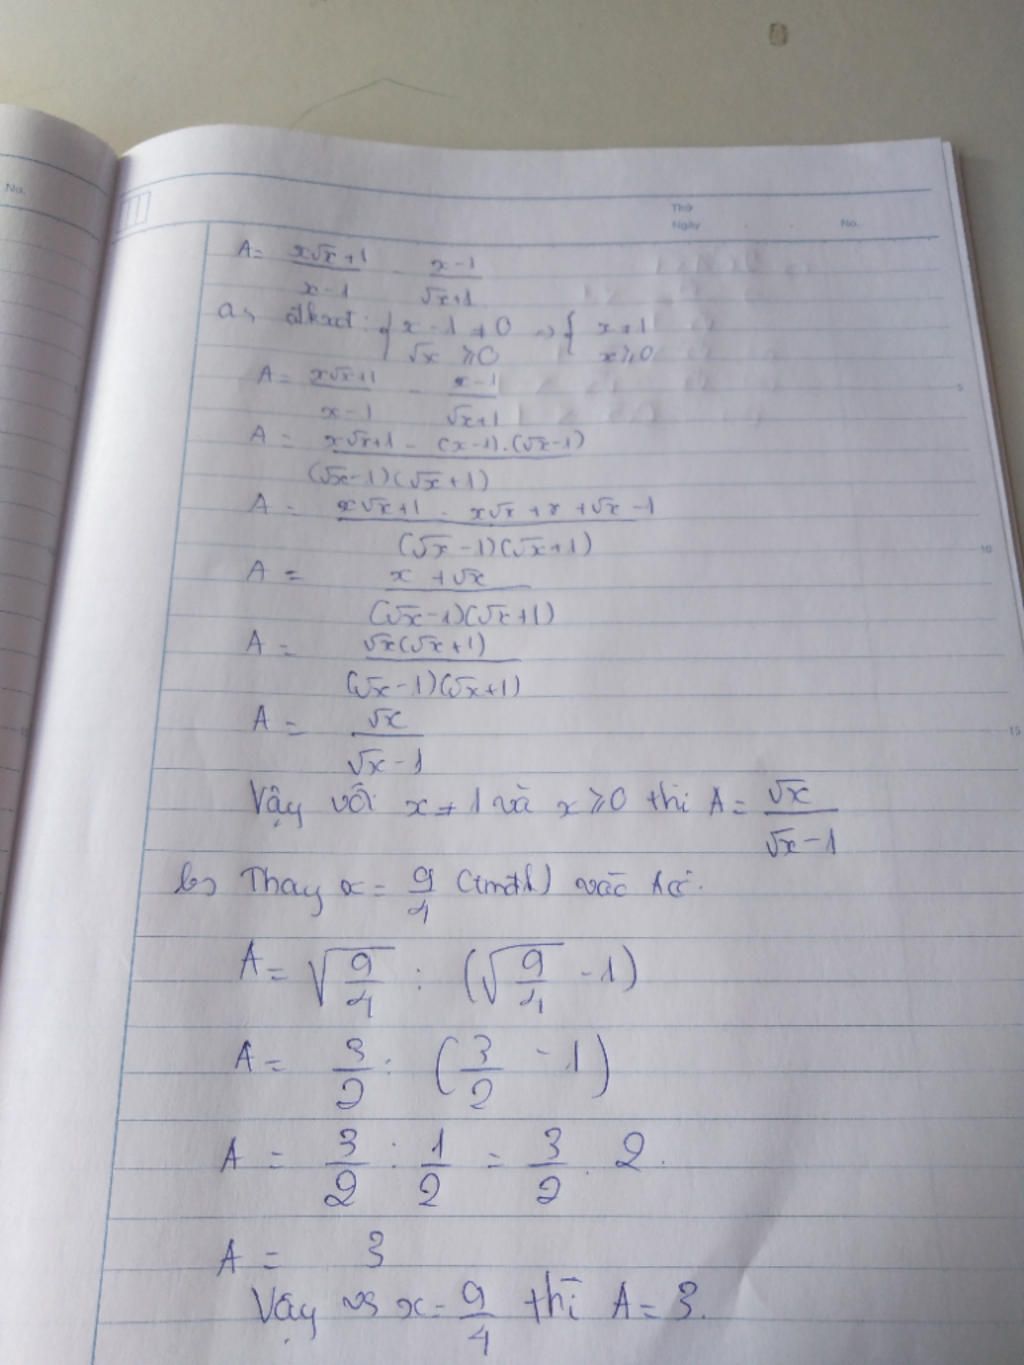 No.
Thứ
Ngày No.
A = \frac{x√x+1}{x-1} - \frac{x-1}{√x+1}
a, đkxđ: { x-1 ≠ 0 => { x ≠ 1
√x ≥ 0 x ≥ 0
A = \frac{x√x+1}{x-1} - \frac{x-1}{√x+1}
5
A = \frac{x√x+1 - (x-1).(√x-1)}{(√x-1)(√x+1)}
A = \frac{x√x+1 - x√x + x + √x - 1}{(√x-1)(√x+1)}
10
A = \frac{x+√x}{(√x-1)(√x+1)}
A = \frac{√x(√x+1)}{(√x-1)(√x+1)}
A = \frac{√x}{√x-1}
15
Vậy với x ≠ 1 và x ≥ 0 thì A = \frac{√x}{√x-1}
b, Thay x = \frac{9}{4} (tmđk) vào A có.
A = \sqrt{\frac{9}{4}} : (\sqrt{\frac{9}{4}} - 1)
A = \frac{3}{2} : (\frac{3}{2} - 1)
A = \frac{3}{2} : \frac{1}{2} = \frac{3}{2} . 2.
A = 3
Vậy vs x = \frac{9}{4} thì A = 3.